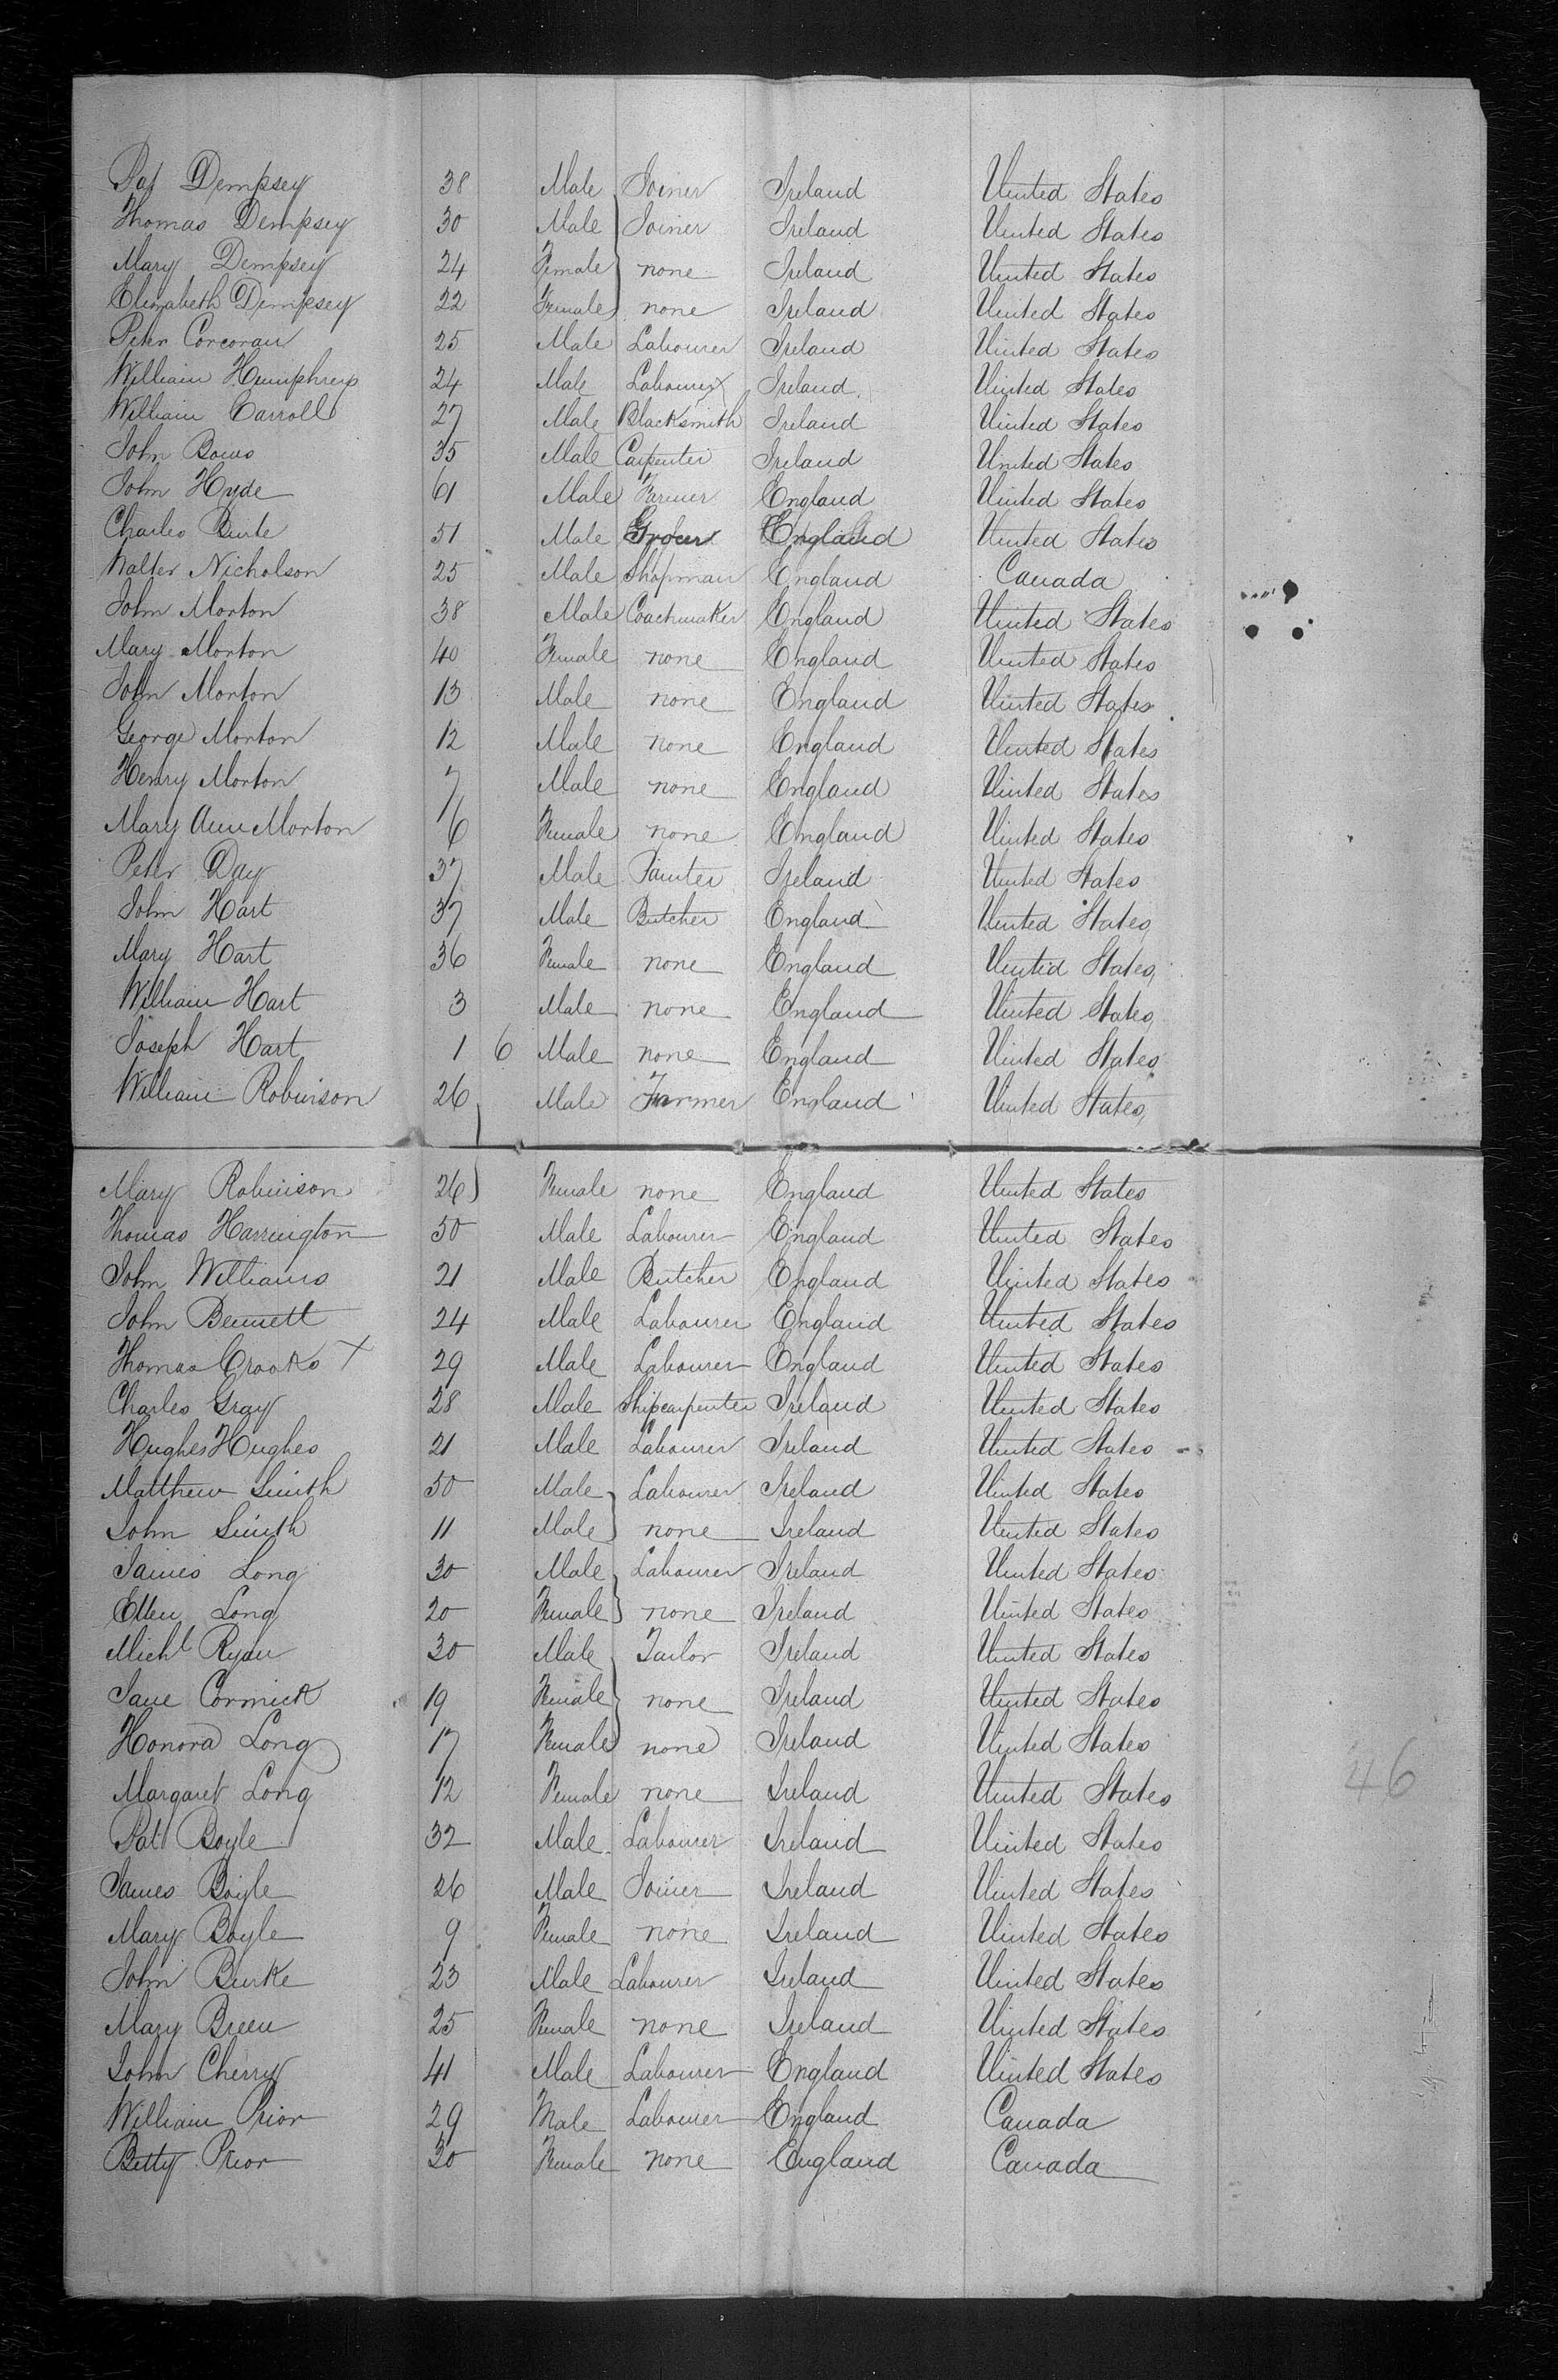 Pat Dempsey 38 Male Joiner Ireland United States
Thomas Dempsey 30 Male Joiner Ireland United States
Mary Dempsey 24 Female none Ireland United States
Elizabeth Dempsey 22 Female none Ireland United States
Peter Corcoran 25 Male Labourer Ireland United States
William Humphreys 24 Male Labourer Ireland United States
William Carroll 27 Male Blacksmith Ireland United States
John 35 Male Carpenter Ireland United States
John Hyde 61 Male Farmer England United States
Charles 51 Male Grocer England United States
Walter Nicholson 25 Male Shopman England Canada
John Morton 38 Male Coachmaker England United States
Mary Morton 40 Female none England United States
John Morton 13 Male none England United States
George Morton 12 Male none England United States
Henry Morton 7 Male none England United States
Mary Ann Morton 6 Female none England United States
Peter Day 37 Male Painter Ireland United States
John Hart 37 Male Butcher England United States
Mary Hart 36 Female none England United States
William Hart 3 Male none England United States
Joseph Hart 1 6 Male none England United States
William Robinson 26 Male Farmer England United States
Mary Robinson 26 Female none England United States
Thomas Harrington 50 Male Labourer England United States
John Williams 21 Male Butcher England United States
John Bennett 24 Male Labourer England United States
Thomas Crooks X 29 Male Labourer England United States
Charles Gray 28 Male Shipcarpenter Ireland United States
Hughes Hughes 21 Male Labourer Ireland United States
Matthew Smith 50 Male Labourer Ireland United States
John Smith 11 Male none Ireland United States
James Long 30 Male Labourer Ireland United States
Ellen Long 20 Female none Ireland United States
Michl Ryan 30 Male Tailor Ireland United States
Jane Cormick 19 Female none Ireland United States
Honora Long 17 Female none Ireland United States
Margaret Long 12 Female none Ireland United States
46
Pat Boyle 32 Male Labourer Ireland United States
James Boyle 26 Male Joiner Ireland United States
Mary Boyle 9 Female none Ireland United States
John Burke 23 Male Labourer Ireland United States
Mary Breen 25 Female none Ireland United States
John Cherry 41 Male Labourer England United States
William Prior 29 Male Labourer England Canada
Betty Prior 30 Female none England Canada